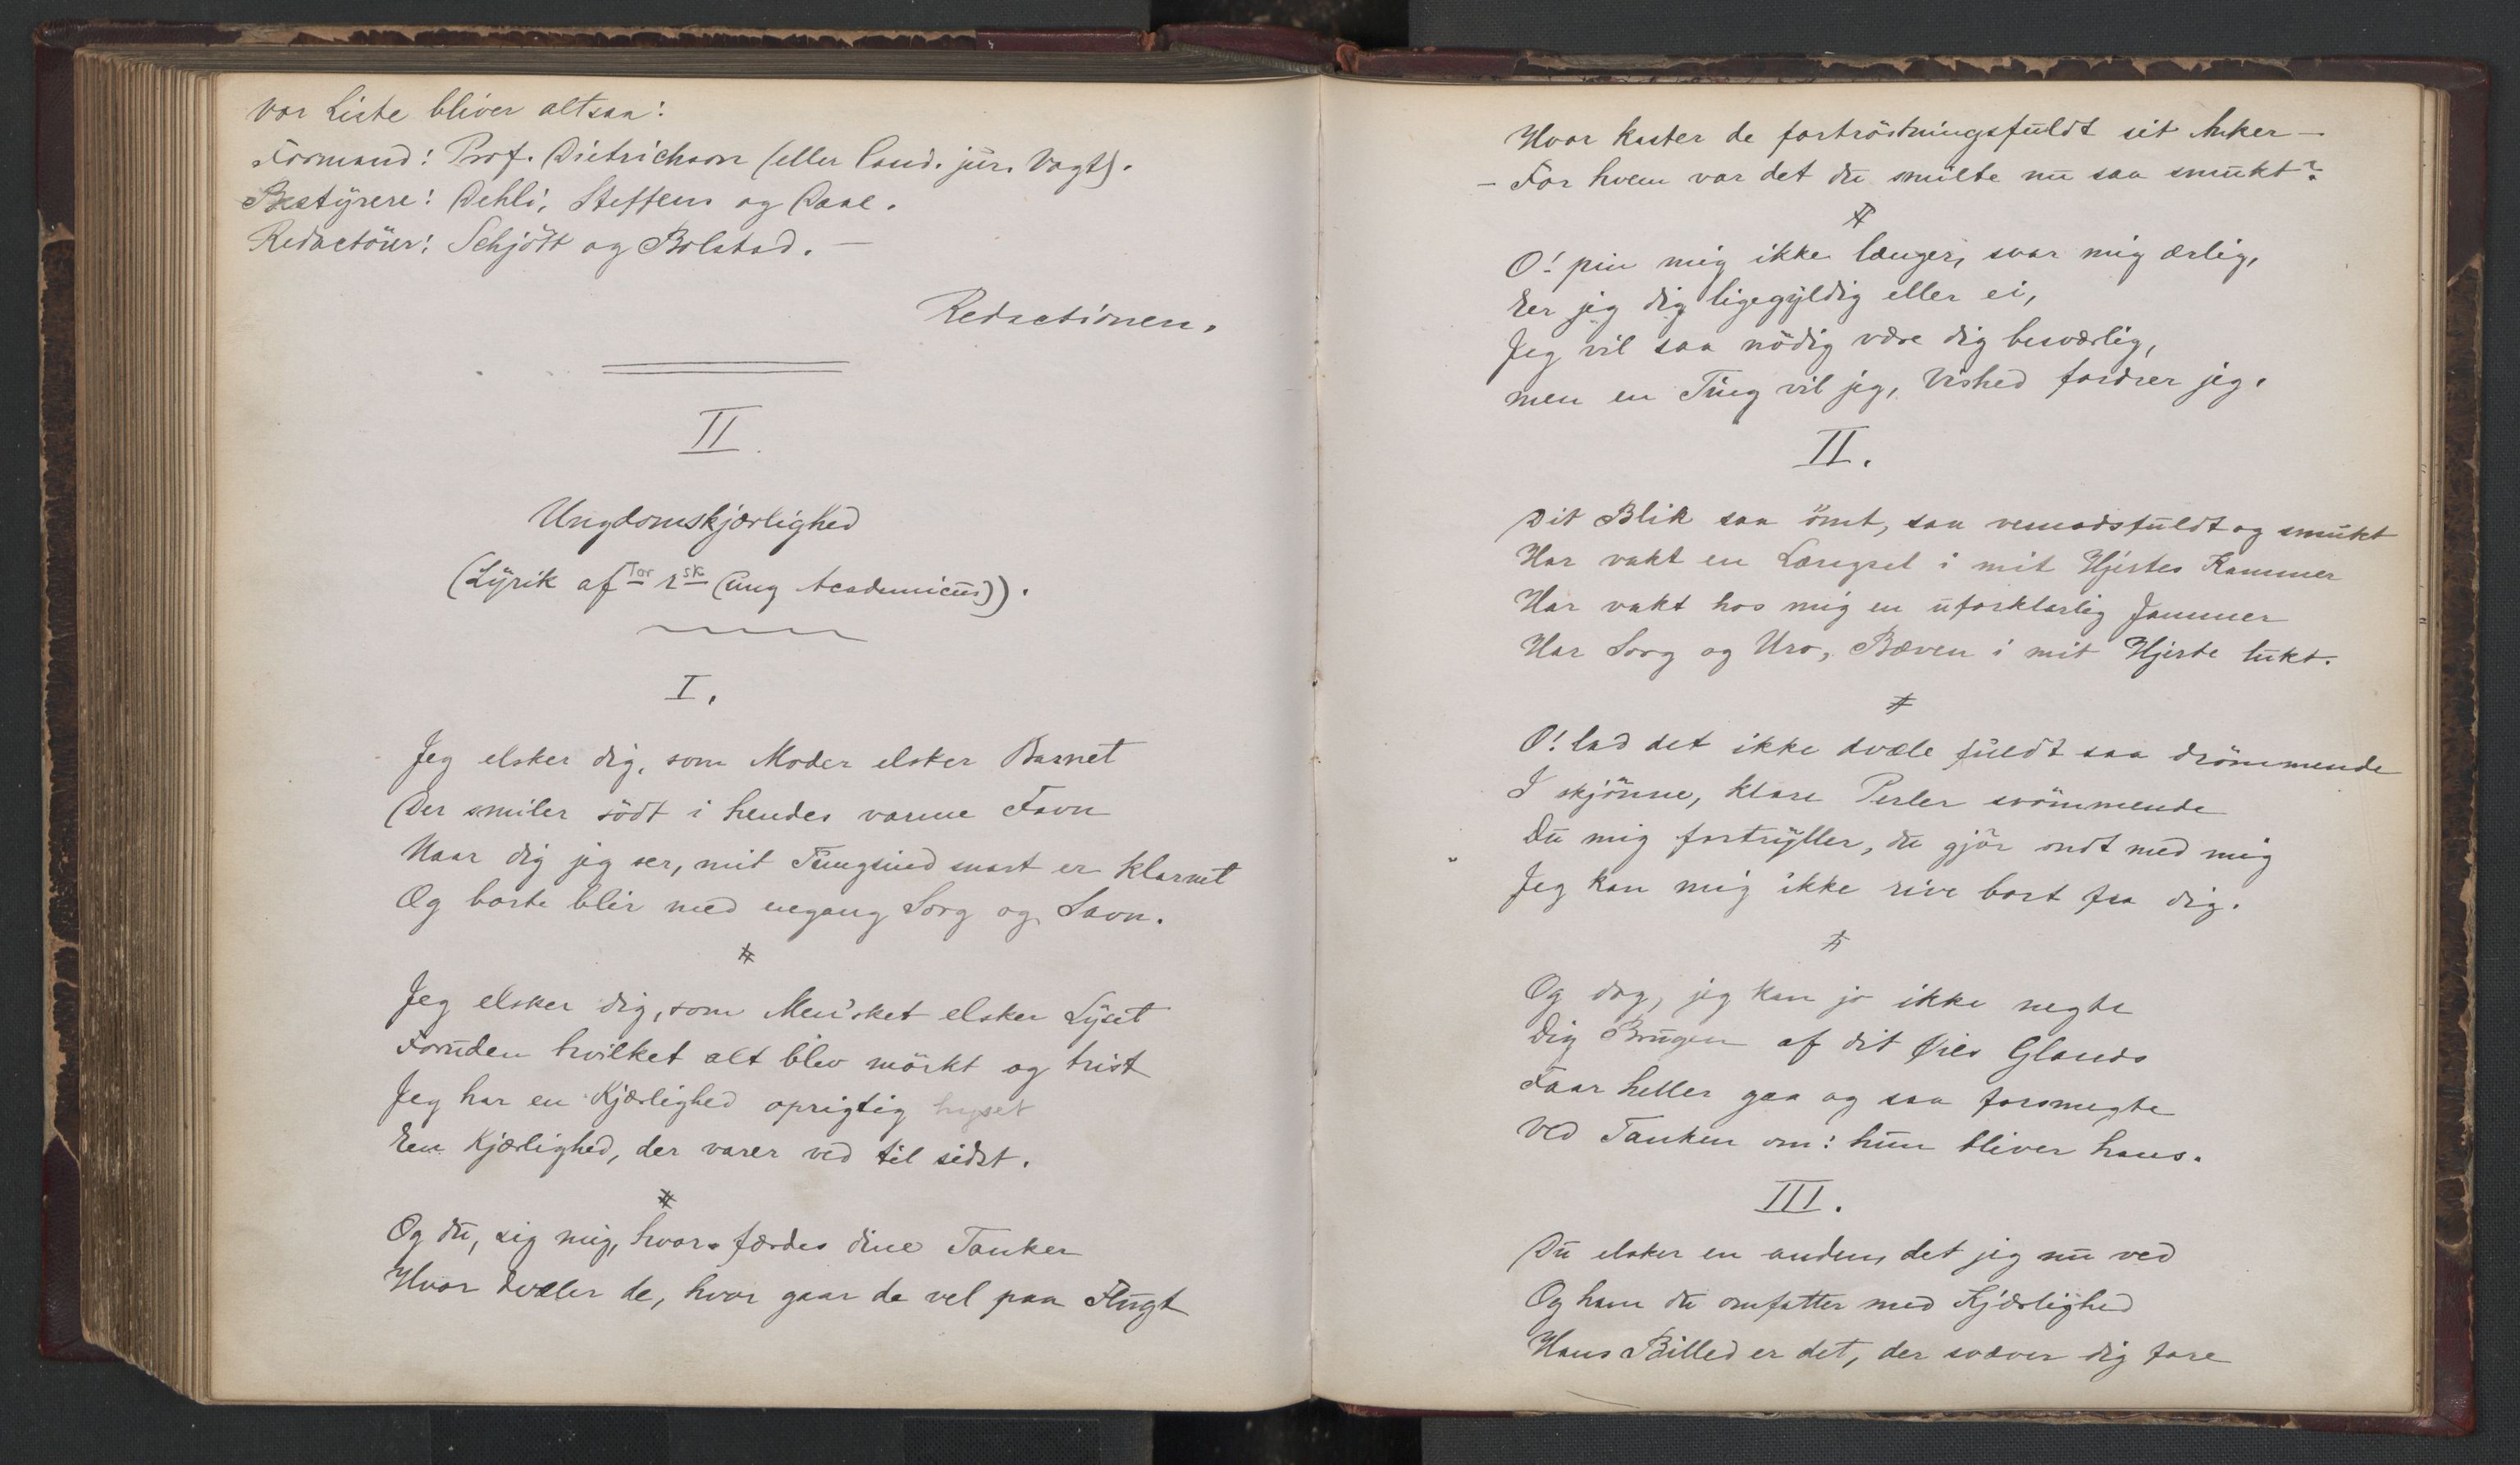 Vor Liste bliver altsaa:
Formand: Prof. Dietrichson (eller Cand. jur. Vogt).
Bestyrere: Dehli, Steffens og Daae.
Redactöur: Schjött og Bolstad. —
Redactionen.
II.
Ungdomskjærlighed
(Lyrik af Tor 2 sk (ung Academicus)).
I.
Jeg elsker dig, som Moder elsker Barnet
Der smiler södt i hendes varme Favn
Naar dig jeg ser, mit Tungsind snart er klarnet
Og borte blir med engang Sorg og Savn.
#
Jeg elsker dig, som Men'sket elsker Lyset
Foruden hvilket alt blev mörkt og trist
Jeg har en Kjærlighed oprigtig hyset
En Kjærlighed, der varer ved til sidst.
#
Og du, sig mig, hvor færdes dine Tanker
Hvor dvæler de, hvor gaar de vel paa Flugt
Hvor kaster de fortröstningsfuldt sit Anker —
— For hvem var det du smilte nu saa smukt?
#
O! pin mig ikke længer, svar mig ærlig,
Er jeg dig ligegyldig eller ei,
Jeg vil saa nödig være dig besværlig,
men en Ting vil jeg, Vished fordrer jeg.
II.
Dit Blik saa ömt, saa vemodsfuldt og smukt
Har vakt en Længsel i mit Hjertes Kammer
Har vakt hos mig en uforklarlig Jammer
Har Sorg og Uro, Bæven i mit Hjerte lukt.
#
O! lad det ikke dvæle fuldt saa drömmende
I skjönne, klare Perler svömmende
Du mig fortryller, du gjör ondt med mig
Jeg kan mig ikke rive bort fra dig.
#
Og dog, jeg kan jo ikke negte
Dig Brugen af dit Øies Glands
Faar heller gaa og saa forsmegte
Ved Tanken om: hun bliver hans.
III.
Du elsker en anden, det jeg nu ved
Og ham du omfatter med Kjærlighed
Hans Billed er det, der svæver dig fore